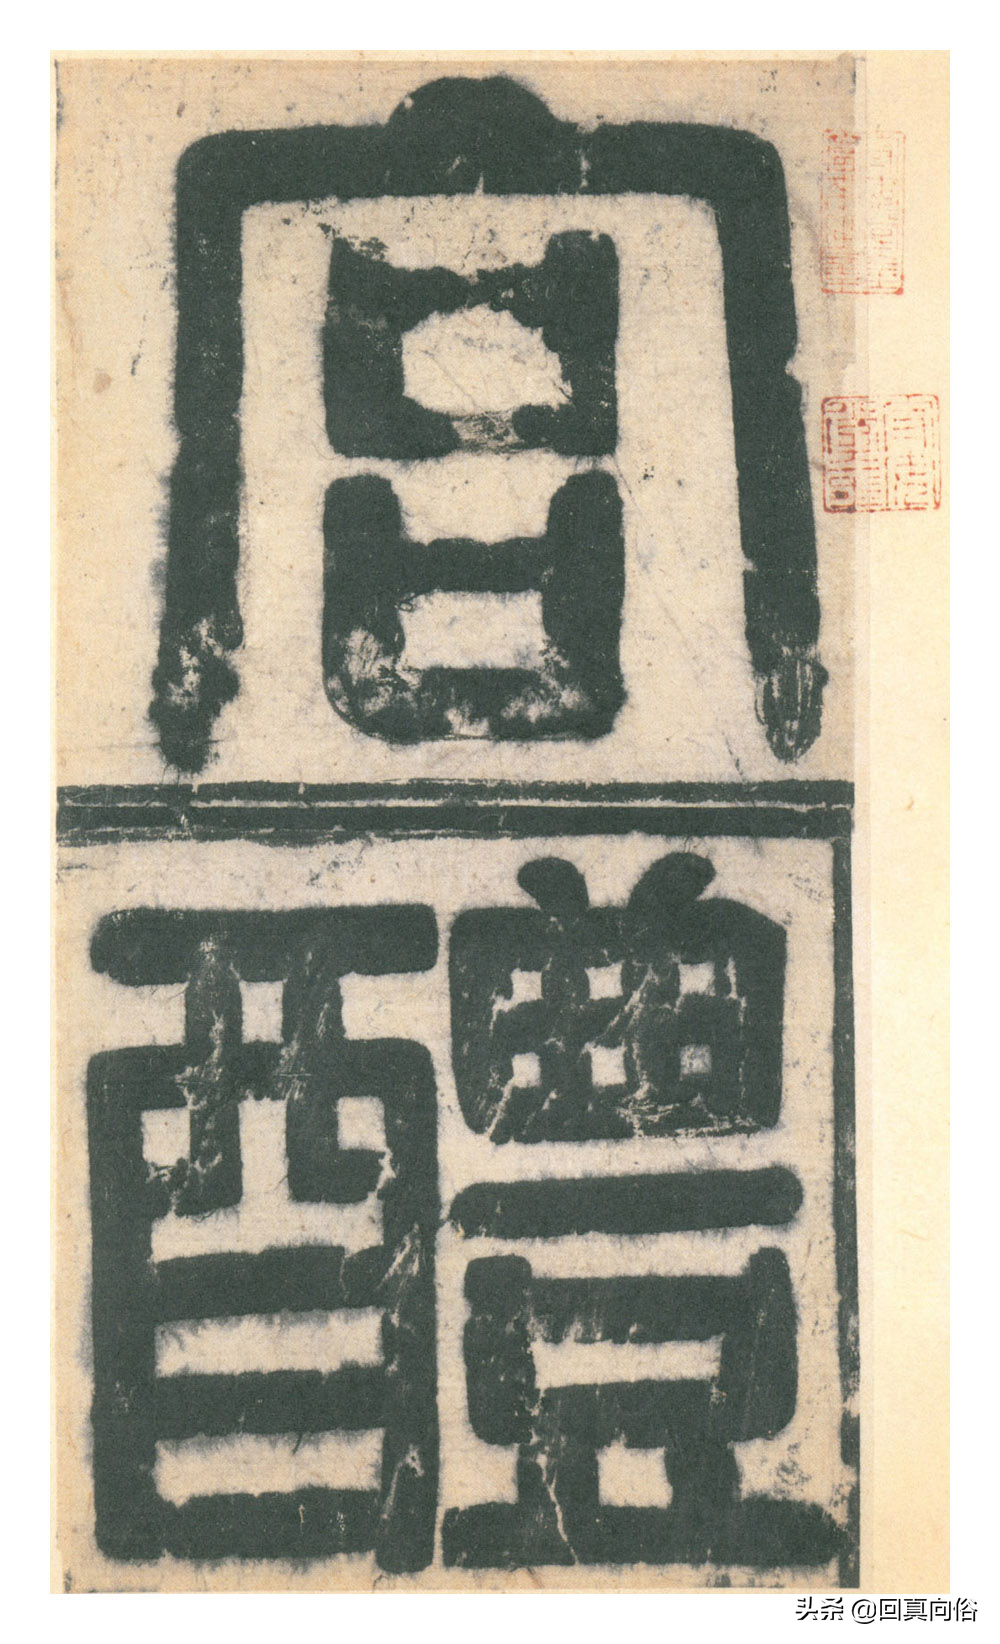 宮
醴
头条 @回真向俗